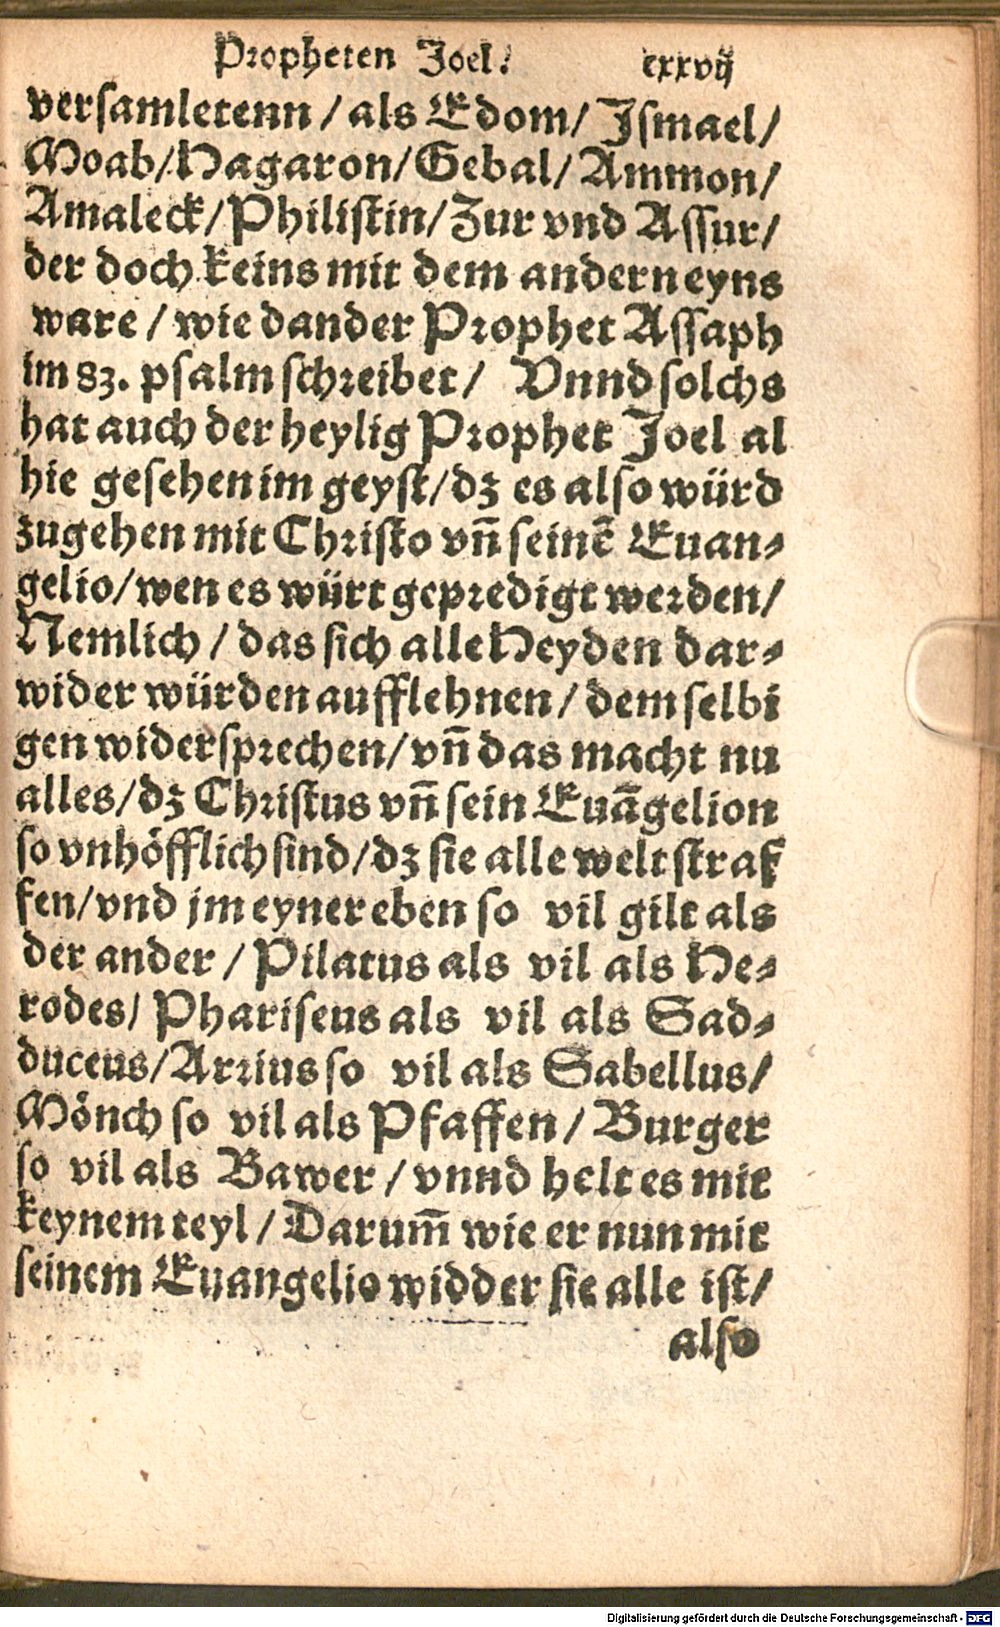 Propheten Joel. cxxvij
versamletenn / als Edom / Jsmael /
Moab / Hagaron / Gebal / Ammon /
Amaleck / Philistin / Zur vnd Assur /
der doch keins mit dem andern eyns
ware / wie dander Prophet Assaph
im 83. psalm schreibet / Vnnd solchs
hat auch der heylig Prophet Joel al
hie gesehen im geyst / dz es also würd
zugehen mit Christo vñ seinẽ Euan-
gelio / wen es würt gepredigt werden /
Nemlich / das sich alle Heyden dar-
wider würden aufflehnen / dem selbi
gen widersprechen / vñ das macht nu
alles / dz Christus vñ sein Euãgelion
so vnhöfflich sind / dz sie alle welt straf
fen / vnd jm eyner eben so vil gilt als
der ander / Pilatus als vil als He-
rodes / Phariseus als vil als Sad-
duceus / Arrius so vil als Sabellus /
Mönch so vil als Pfaffen / Burger
so vil als Bawer / vnnd helt es mit
keynem teyl / Darum̃ wie er nun mit
seinem Euangelio widder sie alle ist /
also
Digitalisierung gefördert durch die Deutsche Forschungsgemeinschaft - DFG